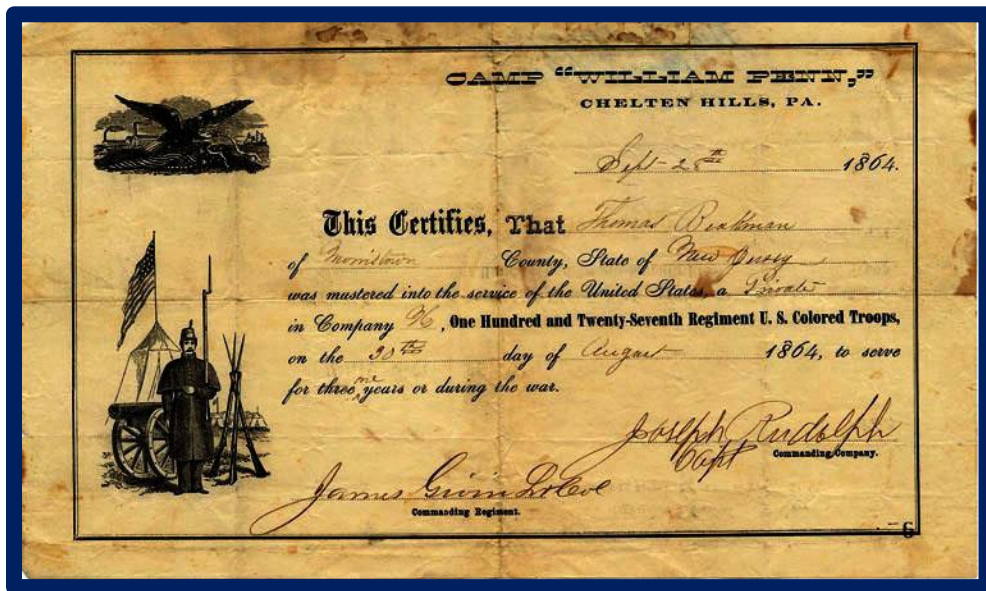 CAMP "WILLIAM PENN,"
CHELTEN HILLS, PA.
Sept 28th 1864.
This Certifies, That Thomas Beekman
of Morristown County, State of New Jersey
was mustered into the service of the United States, a Private
in Company , One Hundred and Twenty-Seventh Regiment U. S. Colored Troops,
on the 30th day of August 1864, to serve
for three one years or during the war.
Joseph Rudolph
Capt Commanding Company.
James Givin Lt Col
Commanding Regiment.
6